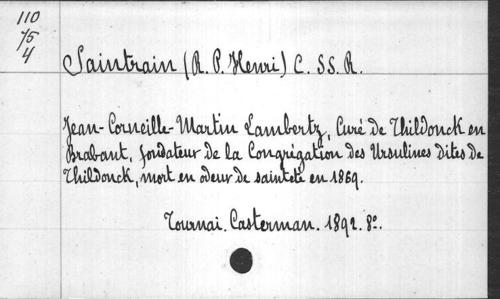 110
75
4
Saintrain (R. P. Henri) C. SS. R.
Jean-Corneille-Martin Lambertz, Curé de Thildonck en
Brabant, fondateur de la Congrégation des Ursulines dites de
Thildonck, mort en odeur de sainteté en 1869.
Tournai. Casterman. 1892. 8º.